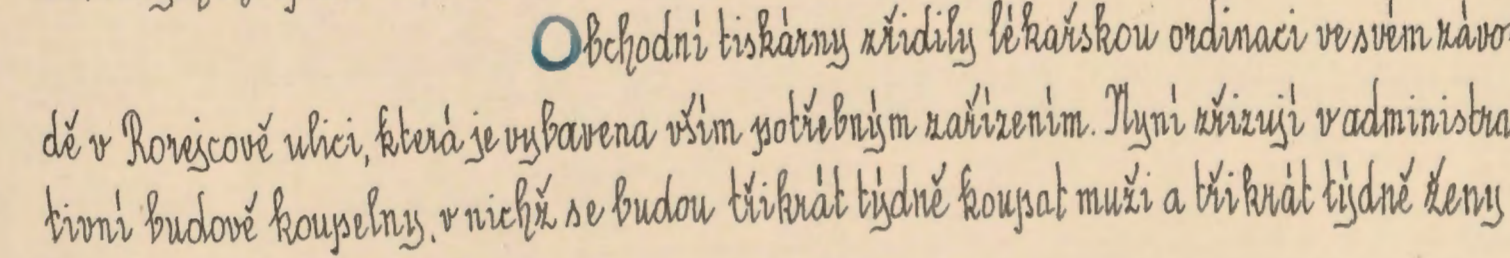 Obchodní tiskárny zřídily lékařskou ordinaci ve svém závo-
dě v Rorejcově ulici, která je vybavena vším potřebným zařízením. Nyní zřizují v administra
tivní budově koupelny, v nichž se budou třikrát týdně koupat muži a třikrát týdně ženy